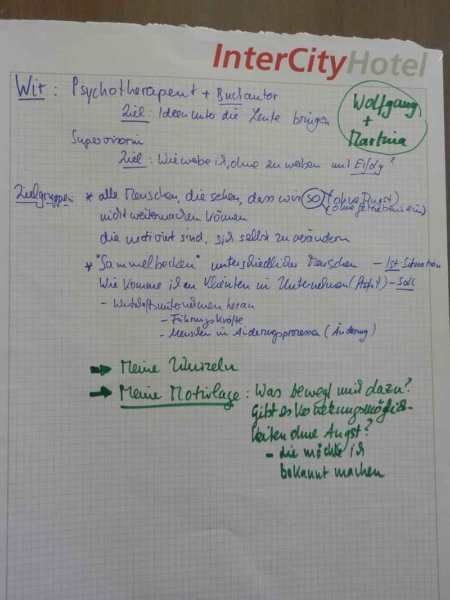 InterCityHotel
Wir : Psychotherapeut + Buchautor
Ziel : Ideen unter die Leute bringen
Wolfgang
+
Martina
Supervisorin
Ziel : Wie werbe ich, ohne zu werben mit Erfolg?
Zielgruppen : * alle Menschen, die sehen, dass wir so (ohne Angst)
(ohne
nicht weitermachen können
die motiviert sind, sich selbst zu verändern
* "Sammelbecken" unterschiedlicher Menschen – Ist Situation
Wie komme ich an Klienten in Unternehmen (Profit) – Soll
- Wirtschaftsunternehmen heran
- Führungskräfte
- Menschen in Änderungsprozessen (Änderung)
→ Meine Wurzeln
→ Meine Motivlage : Was bewegt mich dazu?
Gibt es Vernetzungsmöglich-
keiten ohne Angst?
- die möchte ich
bekannt machen